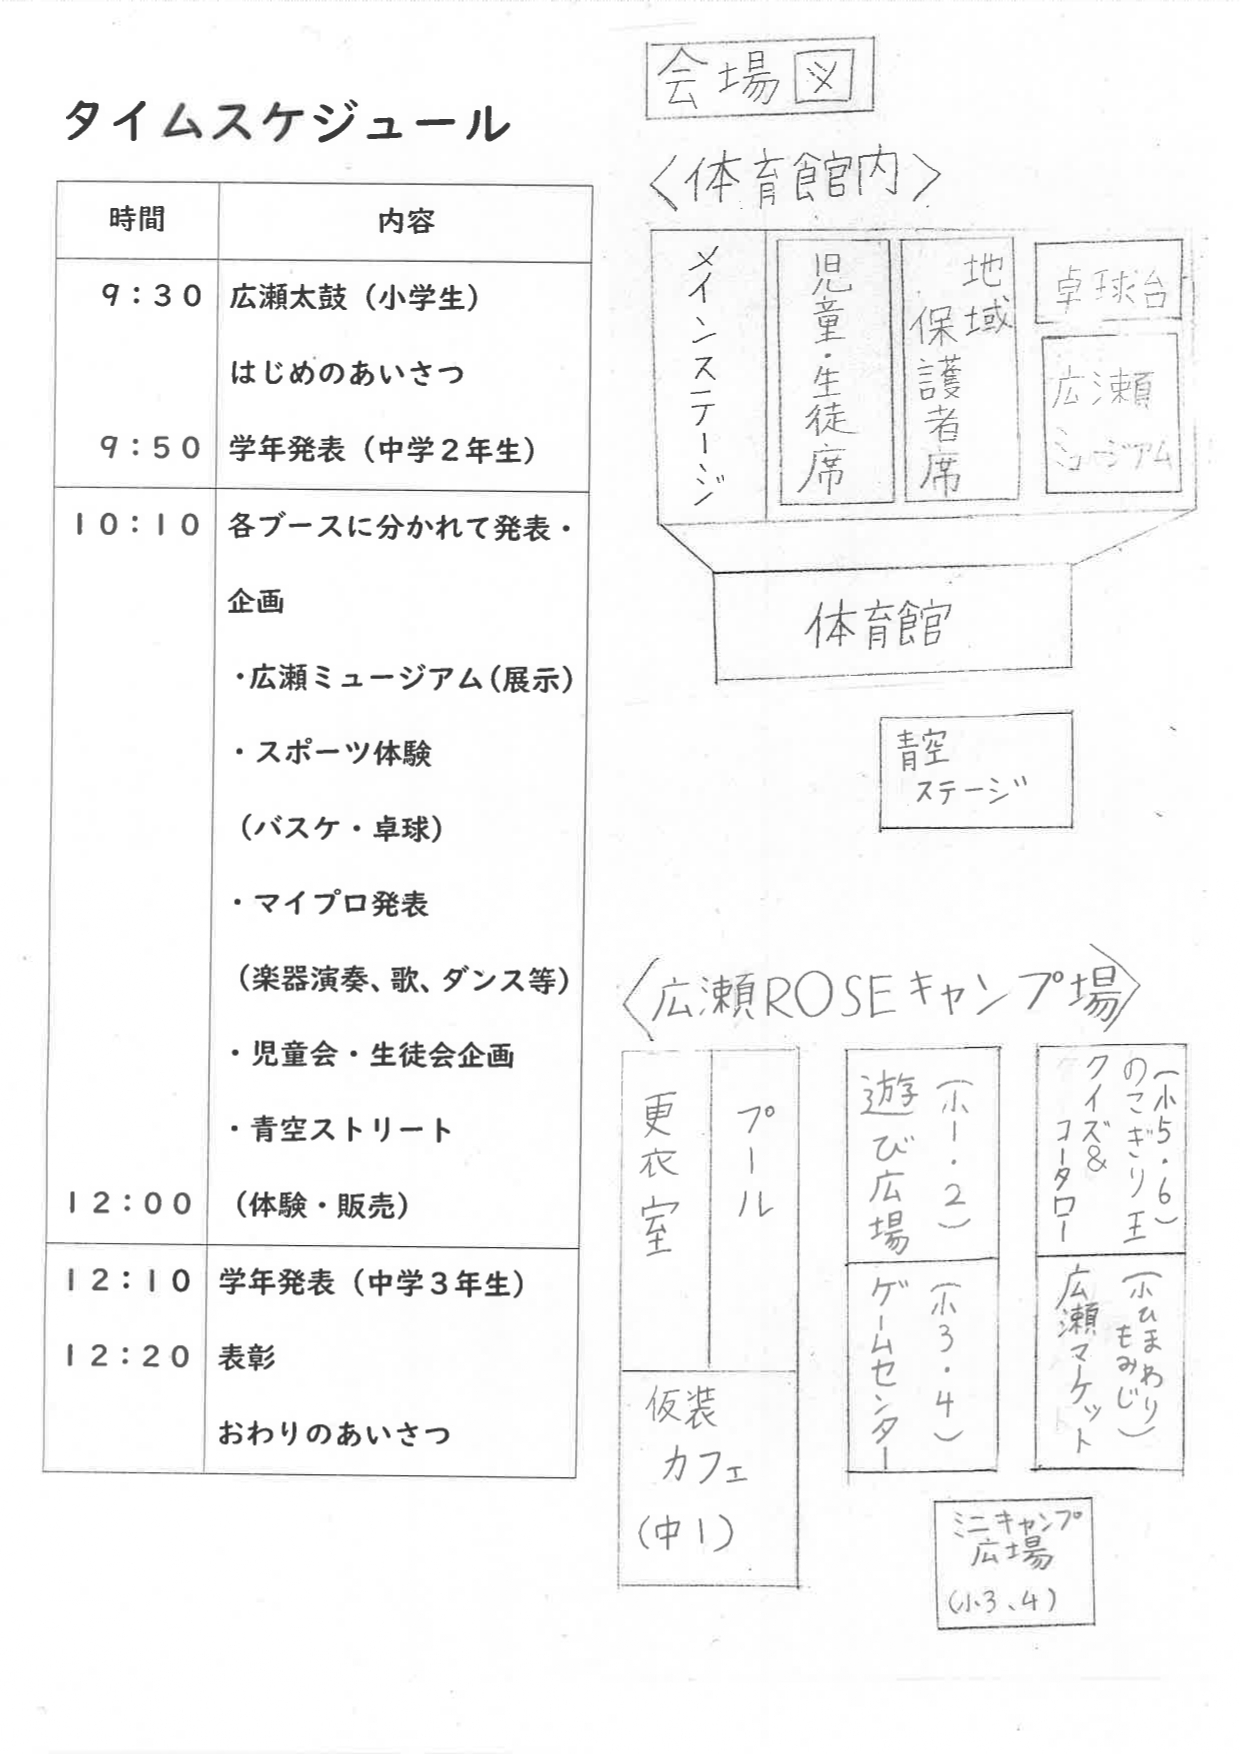 タイムスケジュール
時間 内容
9:30 広瀬太鼓（小学生）
はじめのあいさつ
9:50 学年発表（中学２年生）
10:10 各ブースに分かれて発表・
企画
・広瀬ミュージアム（展示）
・スポーツ体験
（バスケ・卓球）
・マイプロ発表
（楽器演奏、歌、ダンス等）
・児童会・生徒会企画
・青空ストリート
12:00 （体験・販売）
12:10 学年発表（中学３年生）
12:20 表彰
おわりのあいさつ
会場図
〈体育館内〉
メインステージ
児童・生徒席
地域
保護者席
卓球台
広瀬
ミュージアム
体育館
青空
ステージ
〈広瀬ROSEキャンプ場〉
更衣室
プール
仮装
カフェ
(中1)
(小1・2)
遊び広場
(小3・4)
ゲームセンター
(小5・6)
のこぎり王
クイズ&
コータロー
(小ひまわり
もみじ)
広瀬マーケット
ミニキャンプ
広場
(小3、4)